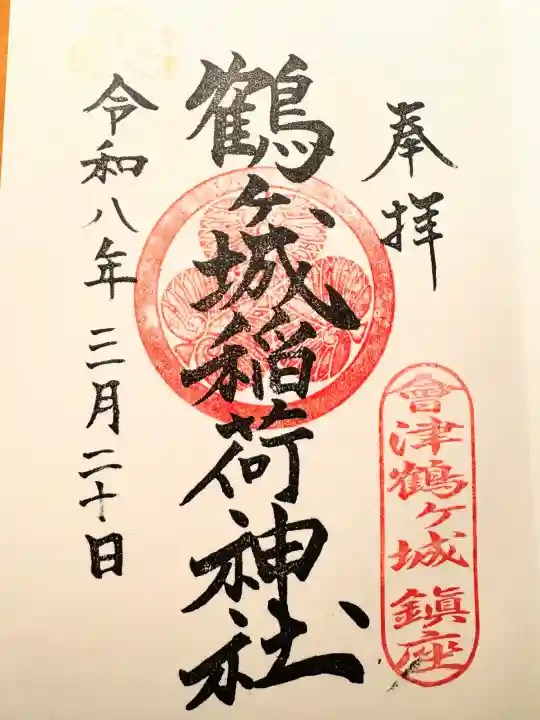 奉拝
會津鶴ヶ城鎮座
鶴ヶ城稲荷神社
令和八年三月二十日